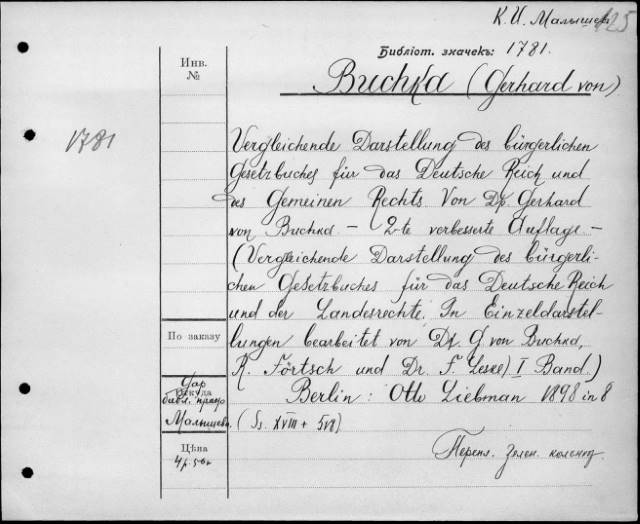 К. И. Малышев 125
Библіот. значекъ: 1781.
Инв.
№
Buchka (Gerhard von)
1781
Vergleichende Darstellung des bürgerlichen
Gesetzbuches für das Deutsche Reich und
des Gemeinen Rechts. Von Dr. Gerhard
von Buchka. — 2-te verbesserte Auflage. —
(Vergleichende Darstellung des bürgerli-
chen Gesetzbuches für das Deutsche Reich
und der Landesrechte. In Einzeldarstel-
lungen bearbeitet von Dr. G. von Buchka,
R. Förtsch und Dr. F. Leske) I Band.)
Berlin: Otto Liebman 1898 in 8
(Ss. XVIII +
По заказу
Дар
Откуда
библ. проф
Малышева.
Цѣна
4 р. 50 к
Перепл. Зелен. коленкор.